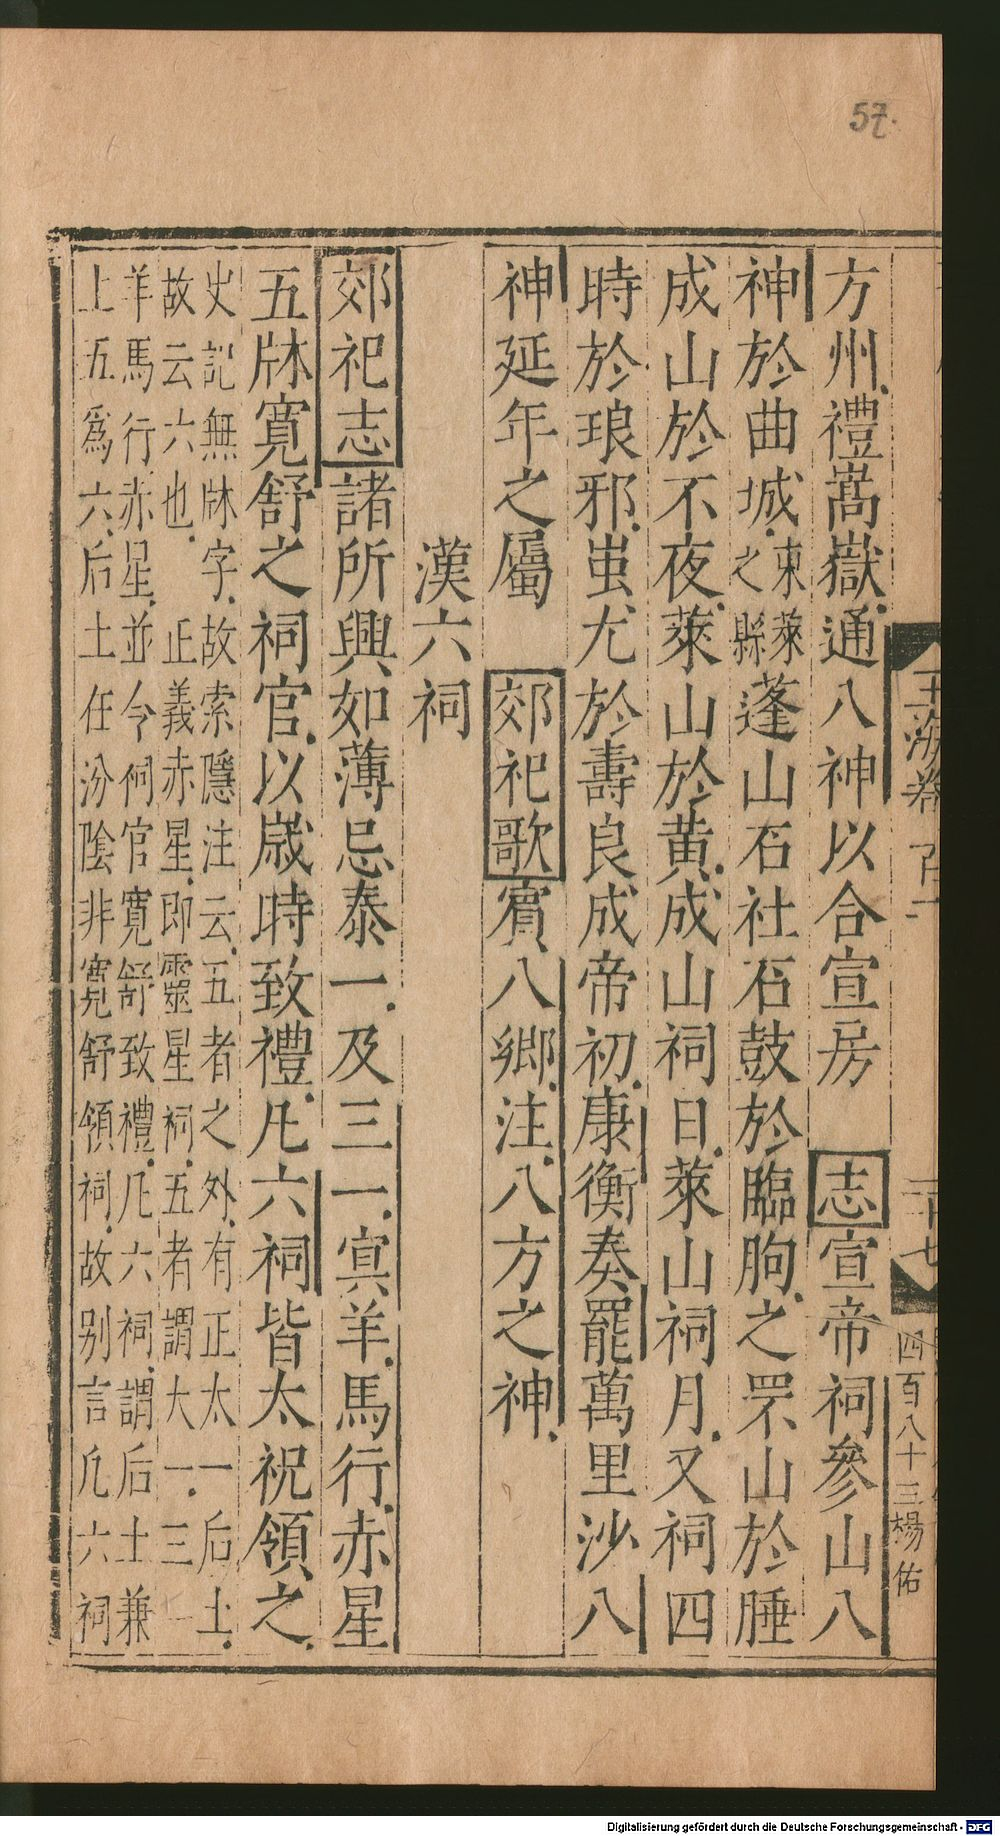 57.
方州禮嵩嶽通八神以合宣房 志宣帝祠參山八
神於曲城東萊之縣蓬山石社石鼓於臨朐之罘山於腄
成山於不夜萊山於黃成山祠日萊山祠月又祠四
時於琅邪蚩尤於壽良成帝初康衡奏罷萬里沙八
神延年之屬 郊祀歌賓八鄉注八方之神
漢六祠
郊祀志諸所興如薄忌泰一及三一冥羊馬行赤星
五牀寬舒之祠官以歲時致禮凡六祠皆太祝領之
史記無牀字故索隱注云五者之外有正太一后土
故云六也 正義赤星即靈星祠五者謂大一三一
羊馬行赤星並令祠官寬舒致禮凡六祠謂后土兼
上五爲六后土在汾陰非寬舒領祠故别言凡六祠
玉海卷 百二
二十七
四百八十三 楊佑
Digitalisierung gefördert durch die Deutsche Forschungsgemeinschaft - DFG